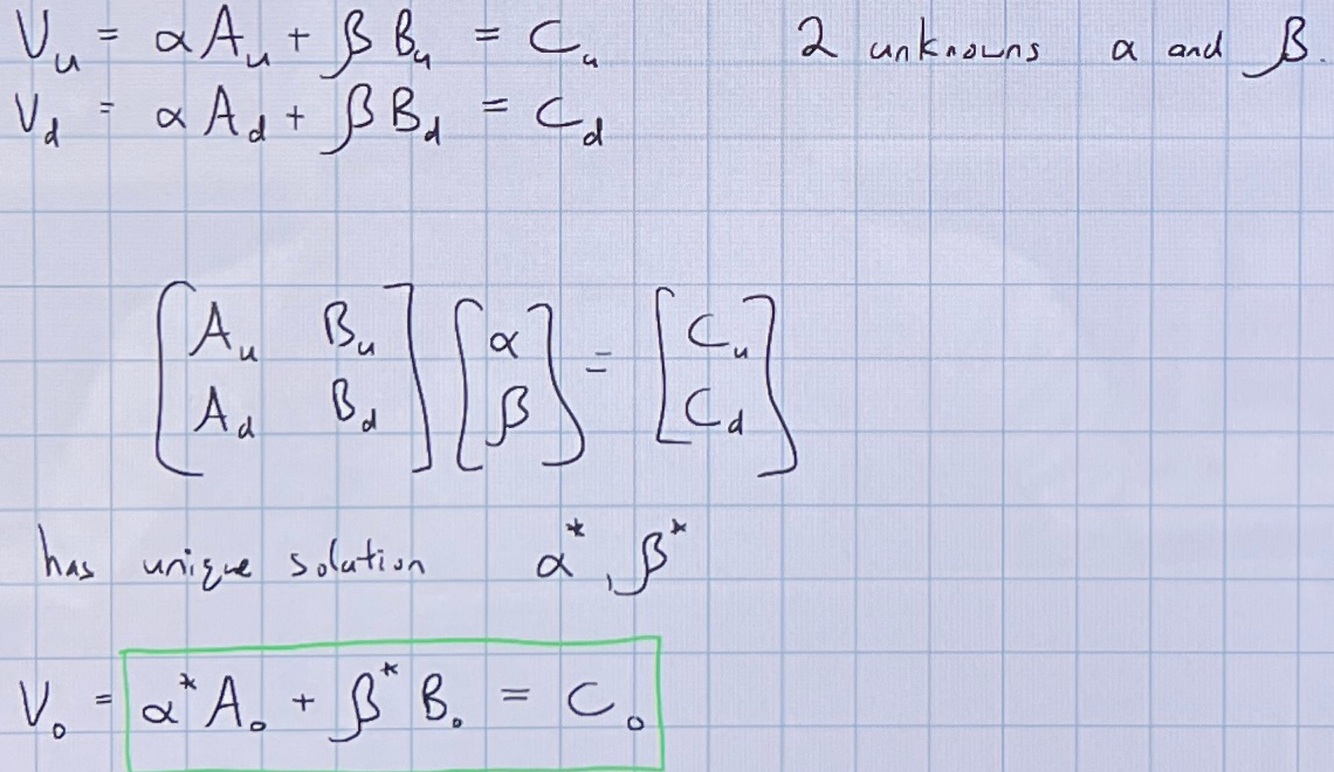 V_u = αA_u + βB_u = C_u 2 unknowns α and β.
V_d = αA_d + βB_d = C_d
[A_u B_u] [α] = [C_u]
[A_d B_d] [β] [C_d]
has unique solution α*, β*
V_0 = α*A_0 + β*B_0 = C_0